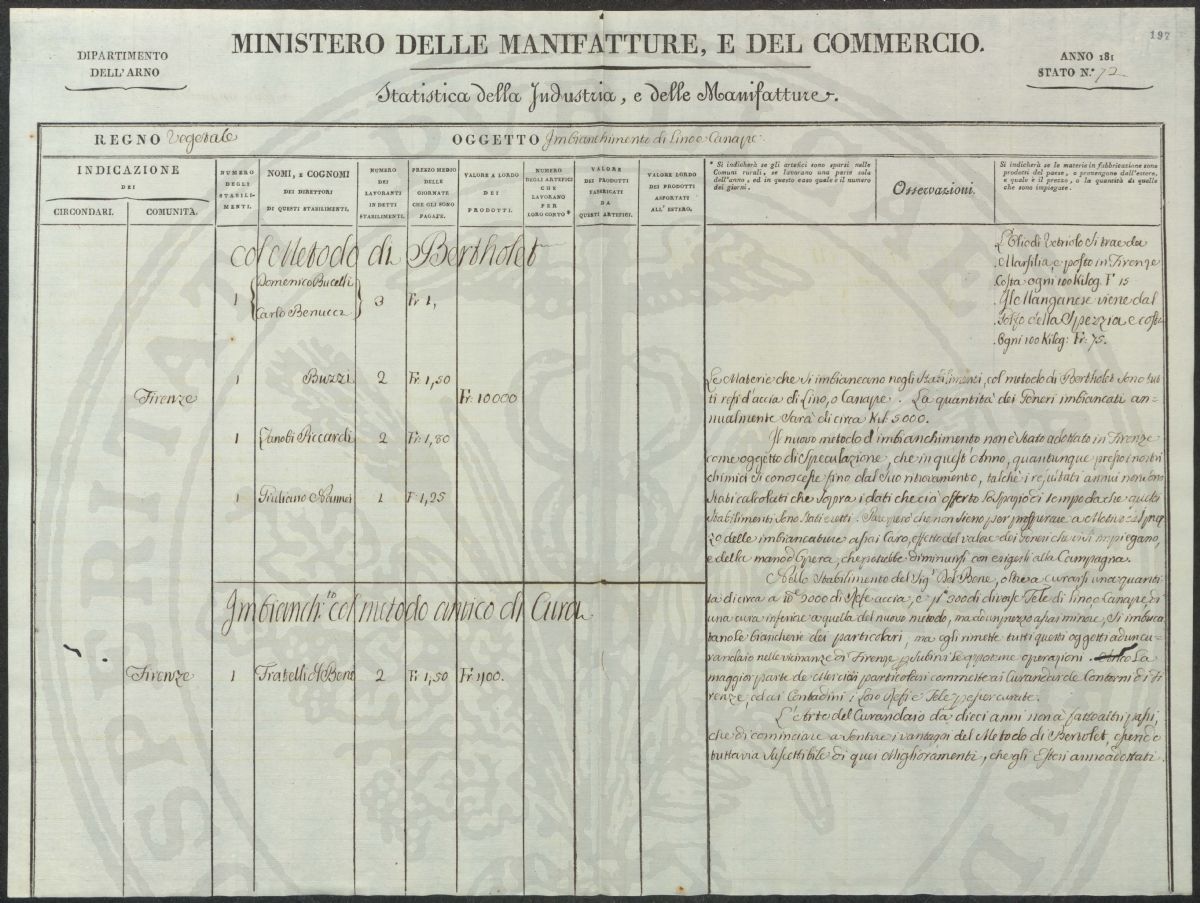 197
DIPARTIMENTO
DELL'ARNO
MINISTERO DELLE MANIFATTURE, E DEL COMMERCIO.
ANNO 181
STATO N.º 72
Statistica della Industria, e delle Manifatture.
REGNO Vegetale
OGGETTO Imbianchimento di Lino e Canape.
INDICAZIONE
DEI
CIRCONDARI.
COMUNITÀ.
NUMERO
DEGLI
STABILI-
MENTI.
NOMI, E COGNOMI
DEI DIRETTORI
DI QUESTI STABILIMENTI.
NUMERO
DEI
LAVORANTI
IN DETTI
STABILIMENTI.
PREZZO MEDIO
DELLE
GIORNATE
CHE GLI SONO
PAGATE.
VALORE A LORDO
DEI
PRODOTTI.
NUMERO
DEGLI ARTEFICI
CHE
LAVORANO
PER
LORO CONTO *
VALORE
DEI PRODOTTI
FABBRICATI
DA
QUESTI ARTEFICI.
VALORE LORDO
DEI
PRODOTTI
ASPORTATI
ALL'ESTERO.
* Si indicherà se gli artefici sono sparsi nelle
Comuni rurali, se lavorano una parte sola
dell'anno, ed in questo caso quale è il numero
dei giorni.
Osservazioni.
Si indicherà se le materie in fabbricazione sono
prodotti del paese, o provengono dall'estero,
e quale è il prezzo, o la quantità di quelle
che sono impiegate.
col Metodo di Bertholet
L'Olio di Vetriolo si trae da
Marsilia, e posto in Firenze
Costa ogni 100 Kilog. F 15
Il Manganese viene dal
Golfo della Spezzia e costa
Ogni 100 Kilog: Fr: 75.
1 Domenico Bucelli
Carlo Benucci 3 Fr 1,
1 Buzzi 2 Fr 1,50
Firenze Fr: 10000
1 Zanobi Riccardi 2 Fr 1,80
1 Giuliano 1 F 1,25
Le Materie che si imbiancano negli Stabilimenti, col metodo di Bertholet sono tut
ti refi d'accia di Lino, o Canape. La quantità dei Generi imbiancati an-
nualmente sarà di circa Kil. 5000.
Il nuovo metodo d'imbianchimento non è stato adottato in Firenze
come oggetto di Speculazione, che in quest'Anno, quantunque presso i nostri
chimici si conoscesse fino dal suo ritrovamento, talchè i resultati annui non sono
stati calcolati che sopra i dati che ci à offerto lo spazio di tempo da che questi
Stabilimenti sono stati eretti. Pare però che non sieno per prosperare a Motivo del prez
zo delle imbiancature assai Caro, effetto del valore dei Generi che vi si impiegano,
e della mano d'Opera, che potrebbe diminuirsi con erigerli alla Campagna.
Nello Stabilimento del Sig.r Del Bene, oltre a curarsi una quanti
tà di circa 3000 di Refe accia, e 300 di diverse Tele di lino e Canape, di
una cura inferiore a quella del nuovo metodo, ma ad un prezzo assai minore, Si imbuca
tano le biancherie dei particolari, ma egli rimette tutti questi oggetti ad un cu-
randaio nelle vicinanze di Firenze p subirvi le opportune operazioni. La
maggior parte de Mercanti particolari commette ai Curandai de Contorni di Fi
renze, ed ai Contadini i loro Refi e Tele p esser curate.
L'Arte del Curandaio da dieci anni non à fatto altri passi,
che di cominciare a sentire i vantaggi del Metodo di Bertolet, essendo
tuttavia suscettibile di quei Miglioramenti, che gli Esteri anno adottati.
Imbianch.to col metodo antico di Cura
Firenze 1 Fratelli del Bene 2 Fr 1,50 Fr 1100.